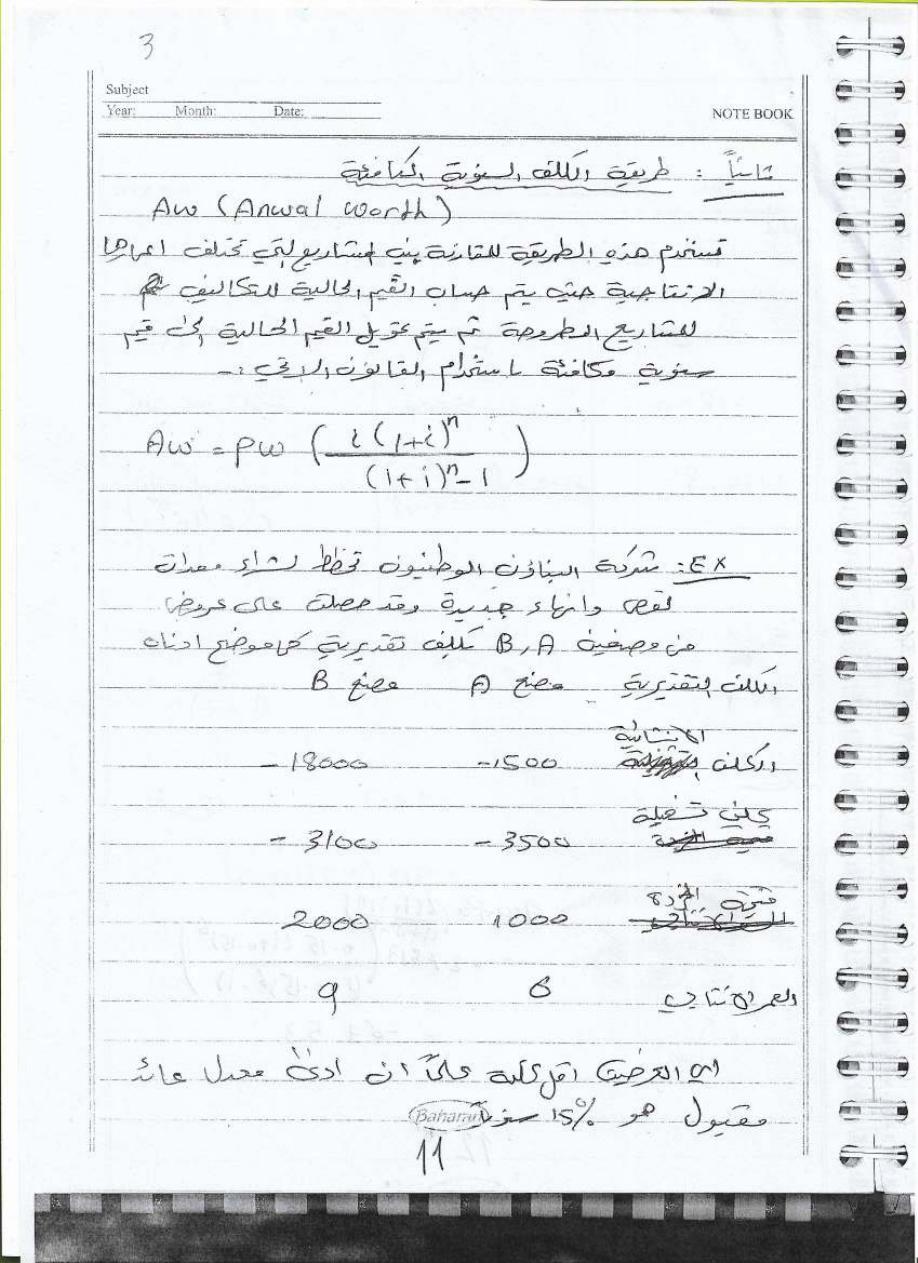 3
Subject
Year: Month: Date:
NOTE BOOK
ثانياً : طريقة الكلف السنوية المكافئة
Aw (Anwal worth)
تستخدم هذه الطريقة للمقارنة بين المشاريع التي تختلف اعمارها
الانتاجية حيث يتم حساب القيم الحالية للتكاليف
للمشاريع المطروحة ثم يتم تحويل القيم الحالية الى قيم
سنوية مكافئة باستخدام القانون الاتي :-
Aw = Pw ( i(1+i)^n / (1+i)^n - 1 )
EX: شركة البناؤن الوطنيون تخطط لشراء معدات
لقص وانهاء جديدة وقد حصلت على عروض
من مصنعين B , A بكلف تقديرية كما موضح ادناه
الكلف التقديرية مصنع A مصنع B
الكلف الانشائية -1500 -18000
تشغيلة -3500 -3100
قيمة الخردة 1000 2000
العمر الانتاجي 6 9
اي العرضين اقل كلفة علماً ان ادنى معدل عائد
مقبول هو 15% سنوياً
Baharan
11